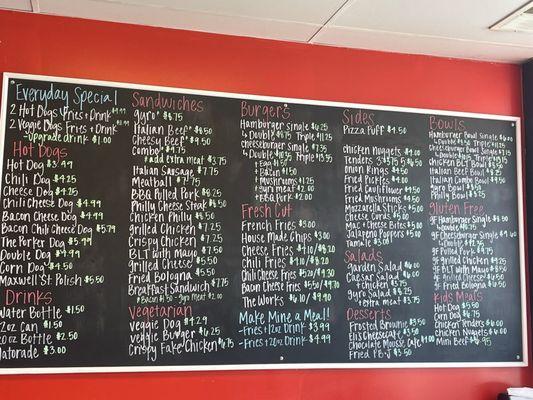 Everyday Special
2 Hot Dogs Fries + Drink
2 Veggie Dogs Fries + Drink
-upgrade drink $1.00
Hot Dogs
Hot Dog $3.99
Chili Dog $4.25
Cheese Dog $4.25
Chili Cheese Dog $4.99
Bacon Cheese Dog $4.99
Bacon Chili Cheese Dog $5.79
The Porter Dog $5.99
Double Dog $4.99
Corn Dog $4.50
Maxwell St. Polish $5.50
Drinks
Water Bottle $1.50
12oz Can $1.50
20oz Bottle $2.50
Gatorade $3.00
Sandwiches
Gyro $8.75
Italian Beef $8.50
Cheesy Beef $9.50
Combo $9.75
* add extra meat $3.75
Italian Sausage $7.75
Meatball $7.75
BBQ Pulled Pork $8.25
Philly Cheese Steak $8.50
Chicken Philly $8.50
Grilled Chicken $7.25
Crispy Chicken $7.25
BLT w/ Mayo $7.50
Grilled Cheese $5.50
Fried Bologna $5.50
Breakfast Sandwich $7.75
* Bacon $1.50 - Gyro Meat $2.00
Vegetarian
Veggie Dog $4.29
Veggie Burger $6.25
Crispy Fake Chicken $6.75
Burgers
Hamburger Single $6.25
*Double Triple
Cheeseburger Single
*Double Triple
*Egg $1.50
*Bacon
*Mushroom
*Gyro Meat $2.00
*BBQ Pork $2.00
Fresh Cut
French Fries $3.00
House Made Chips $3.00
Cheese Fries
Chili Fries
Chili Cheese Fries
Bacon Cheese Fries
The Works
Make Mine a Meal!
-Fries + 12oz Drink $3.99
-Fries + 20oz Drink $4.99
Sides
Pizza Puff $4.50
Chicken Nuggets
Tenders
Onion Rings $4.50
Fried Pickles $4.00
Fried Cauliflower $4.50
Fried Mushrooms $4.50
Mozzarella Sticks $5.00
Cheese Curds $5.00
Mac + Cheese Bites $5.00
Jalapeno Poppers $5.00
Tamale $3.00
Salads
Garden Salad $6.00
Caesar Salad $6.00
+ Chicken $3.75
Gyro Salad $8.75
* extra meat $3.75
Desserts
Frosted Brownie $3.50
Eli's Cheesecake $3.50
Chocolate Mousse Cake
Fried PB+J $3.50
Bowls
Hamburger Bowl Single
*Double Triple
Cheeseburger Bowl Single
*Double Triple
Chicken Bowl
Italian Beef Bowl
Italian Combo Bowl
Gyro Bowl
Philly Bowl
Gluten Free
GF Hamburger Single
*Double
GF Cheeseburger Single
*Double
GF Pulled Pork
GF Grilled Chicken
GF BLT w/ Mayo $8.50
GF Grilled Cheese $6.50
GF Fried Bologna $6.50
Kids Meals
Hot Dog $5.50
Corn Dog $6.75
Chicken Tenders $6.00
Chicken Nuggets $6.00
Mini Beef $6.95